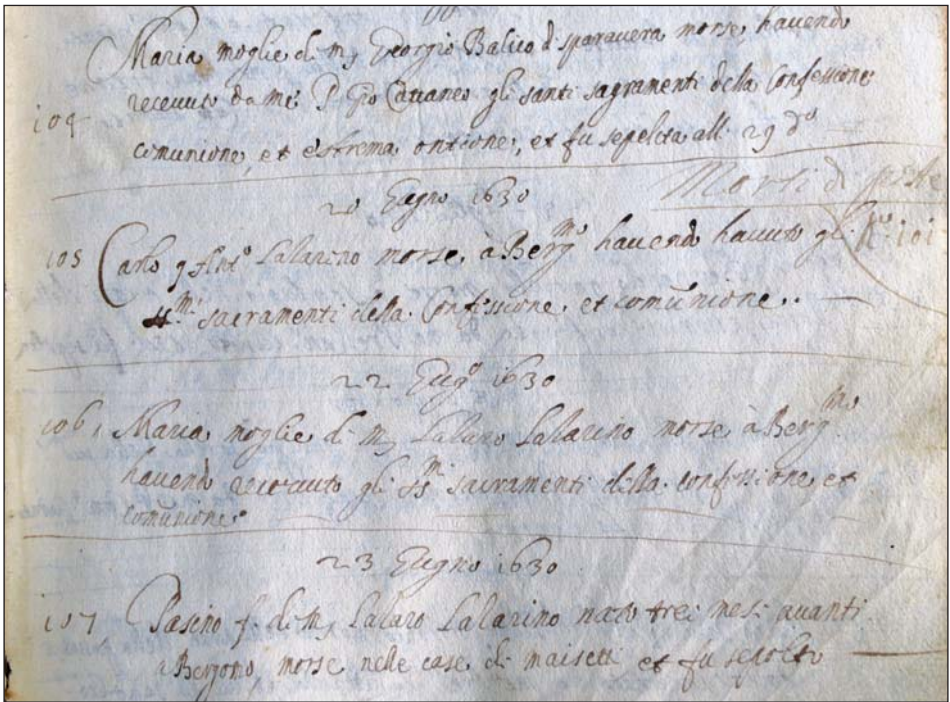 Maria moglie di m. Georgio Balico d. sparavera morse, havendo
104 recevuto da me P Gio Cattaneo gli santi sagramenti della Confessione
comunione, et estrema ontione, et fu sepelita all. 29 do
Morti di peste
20 Giugno 1630
105 Carlo q Anto Lalarino morse, à Bergmo havendo havuto gli No 101
ssmi sacramenti della Confessione, et comūnione..
22 Giugo 1630
106, Maria moglie di m. Lalaro Lalarino morse à Bergmo
havendo recevuto gli ssmi sacramenti della confessione, et
comūnione.
23 Giugno 1630
107 Pasino f. di m. Lalaro Lalarino nato trei mesi avanti
a Bergomo, morse nelle case di maisetti et fu sepolto